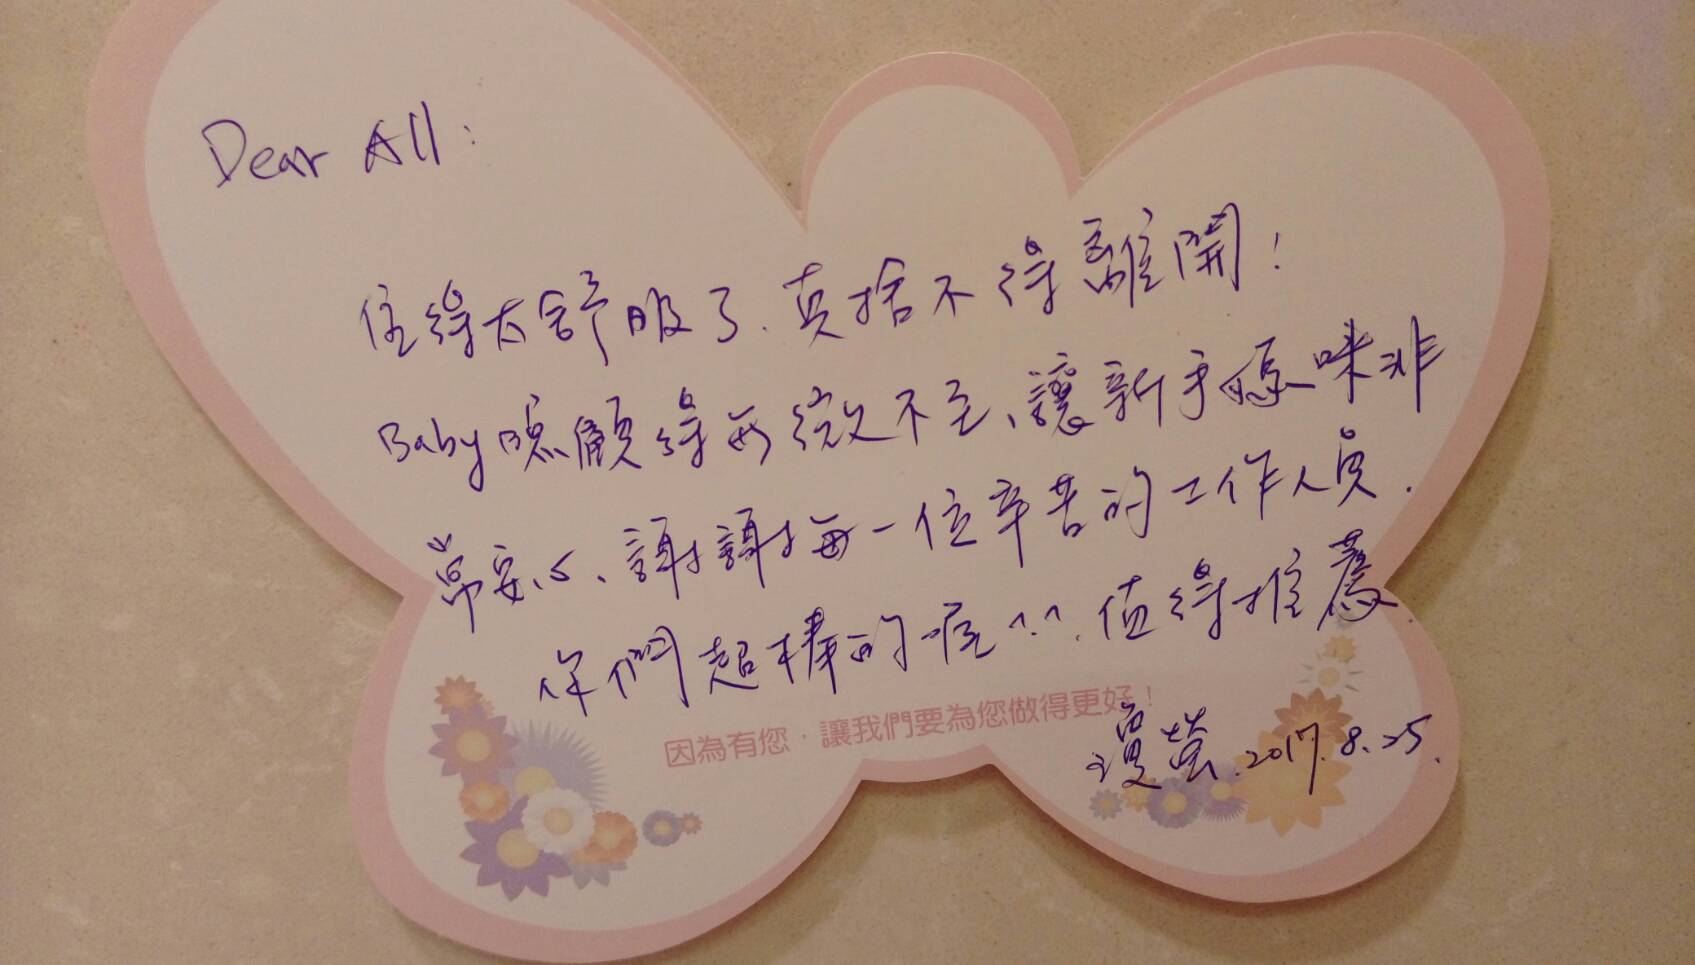 Dear All:
住得太舒服了.真捨不得離開!
Baby照顧得無微不至、讓新手媽咪非
常安心、謝謝每一位辛苦的工作人員.
你們超棒的喔^.^.值得推薦
因為有您,讓我們要為您做得更好!
2017.8.25.